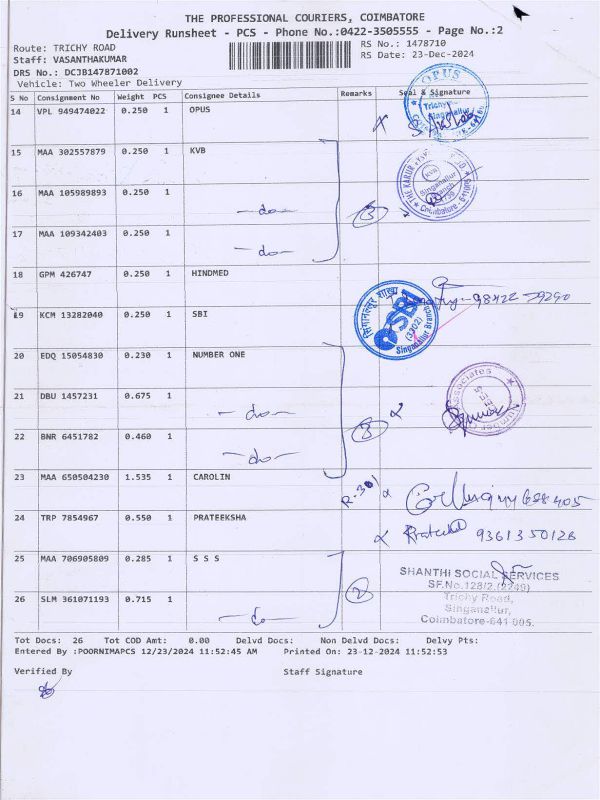 THE PROFESSIONAL COURIERS, COIMBATORE
Delivery Runsheet - PCS - Phone No.:0422-3505555 - Page No.:2
Route: TRICHY ROAD
RS No.: 1478710
Staff: VASANTHAKUMAR
RS Date: 23-Dec-2024
DRS No.: DCJB147871002
Vehicle: Two Wheeler Delivery
S No Consignment No Weight PCS Consignee Details Remarks Seal & Signature
14 VPL 949474022 0.250 1 OPUS
OPUS
Trichy
Singanallur
15 MAA 302557879 0.250 1 KVB
THE KARUR
KVB
Singanallur
Branch
Coimbatore - 641005
16 MAA 105989893 0.250 1
-do- 3
17 MAA 109342403 0.250 1
-do-
18 GPM 426747 0.250 1 HINDMED
19 KCM 13282040 0.250 1 SBI
सिंगानल्लूर शाखा
SBI
Singanallur Branch
20 EDQ 15054830 0.230 1 NUMBER ONE
Associates
21 DBU 1457231 0.675 1
-do- 3
22 BNR 6451782 0.460 1
-do-
23 MAA 650504230 1.535 1 CAROLIN
24 TRP 7854967 0.550 1 PRATEEKSHA
Prateeksha
25 MAA 706905809 0.285 1 S S S
SHANTHI SOCIAL SERVICES
SF.No.128/2.(2249)
Trichy Road,
Singanallur,
Coimbatore-641 005.
2
26 SLM 361071193 0.715 1
-do-
Tot Docs: 26 Tot COD Amt: 0.00 Delvd Docs: Non Delvd Docs: Delvy Pts:
Entered By :POORNIMAPCS 12/23/2024 11:52:45 AM Printed On: 23-12-2024 11:52:53
Verified By Staff Signature